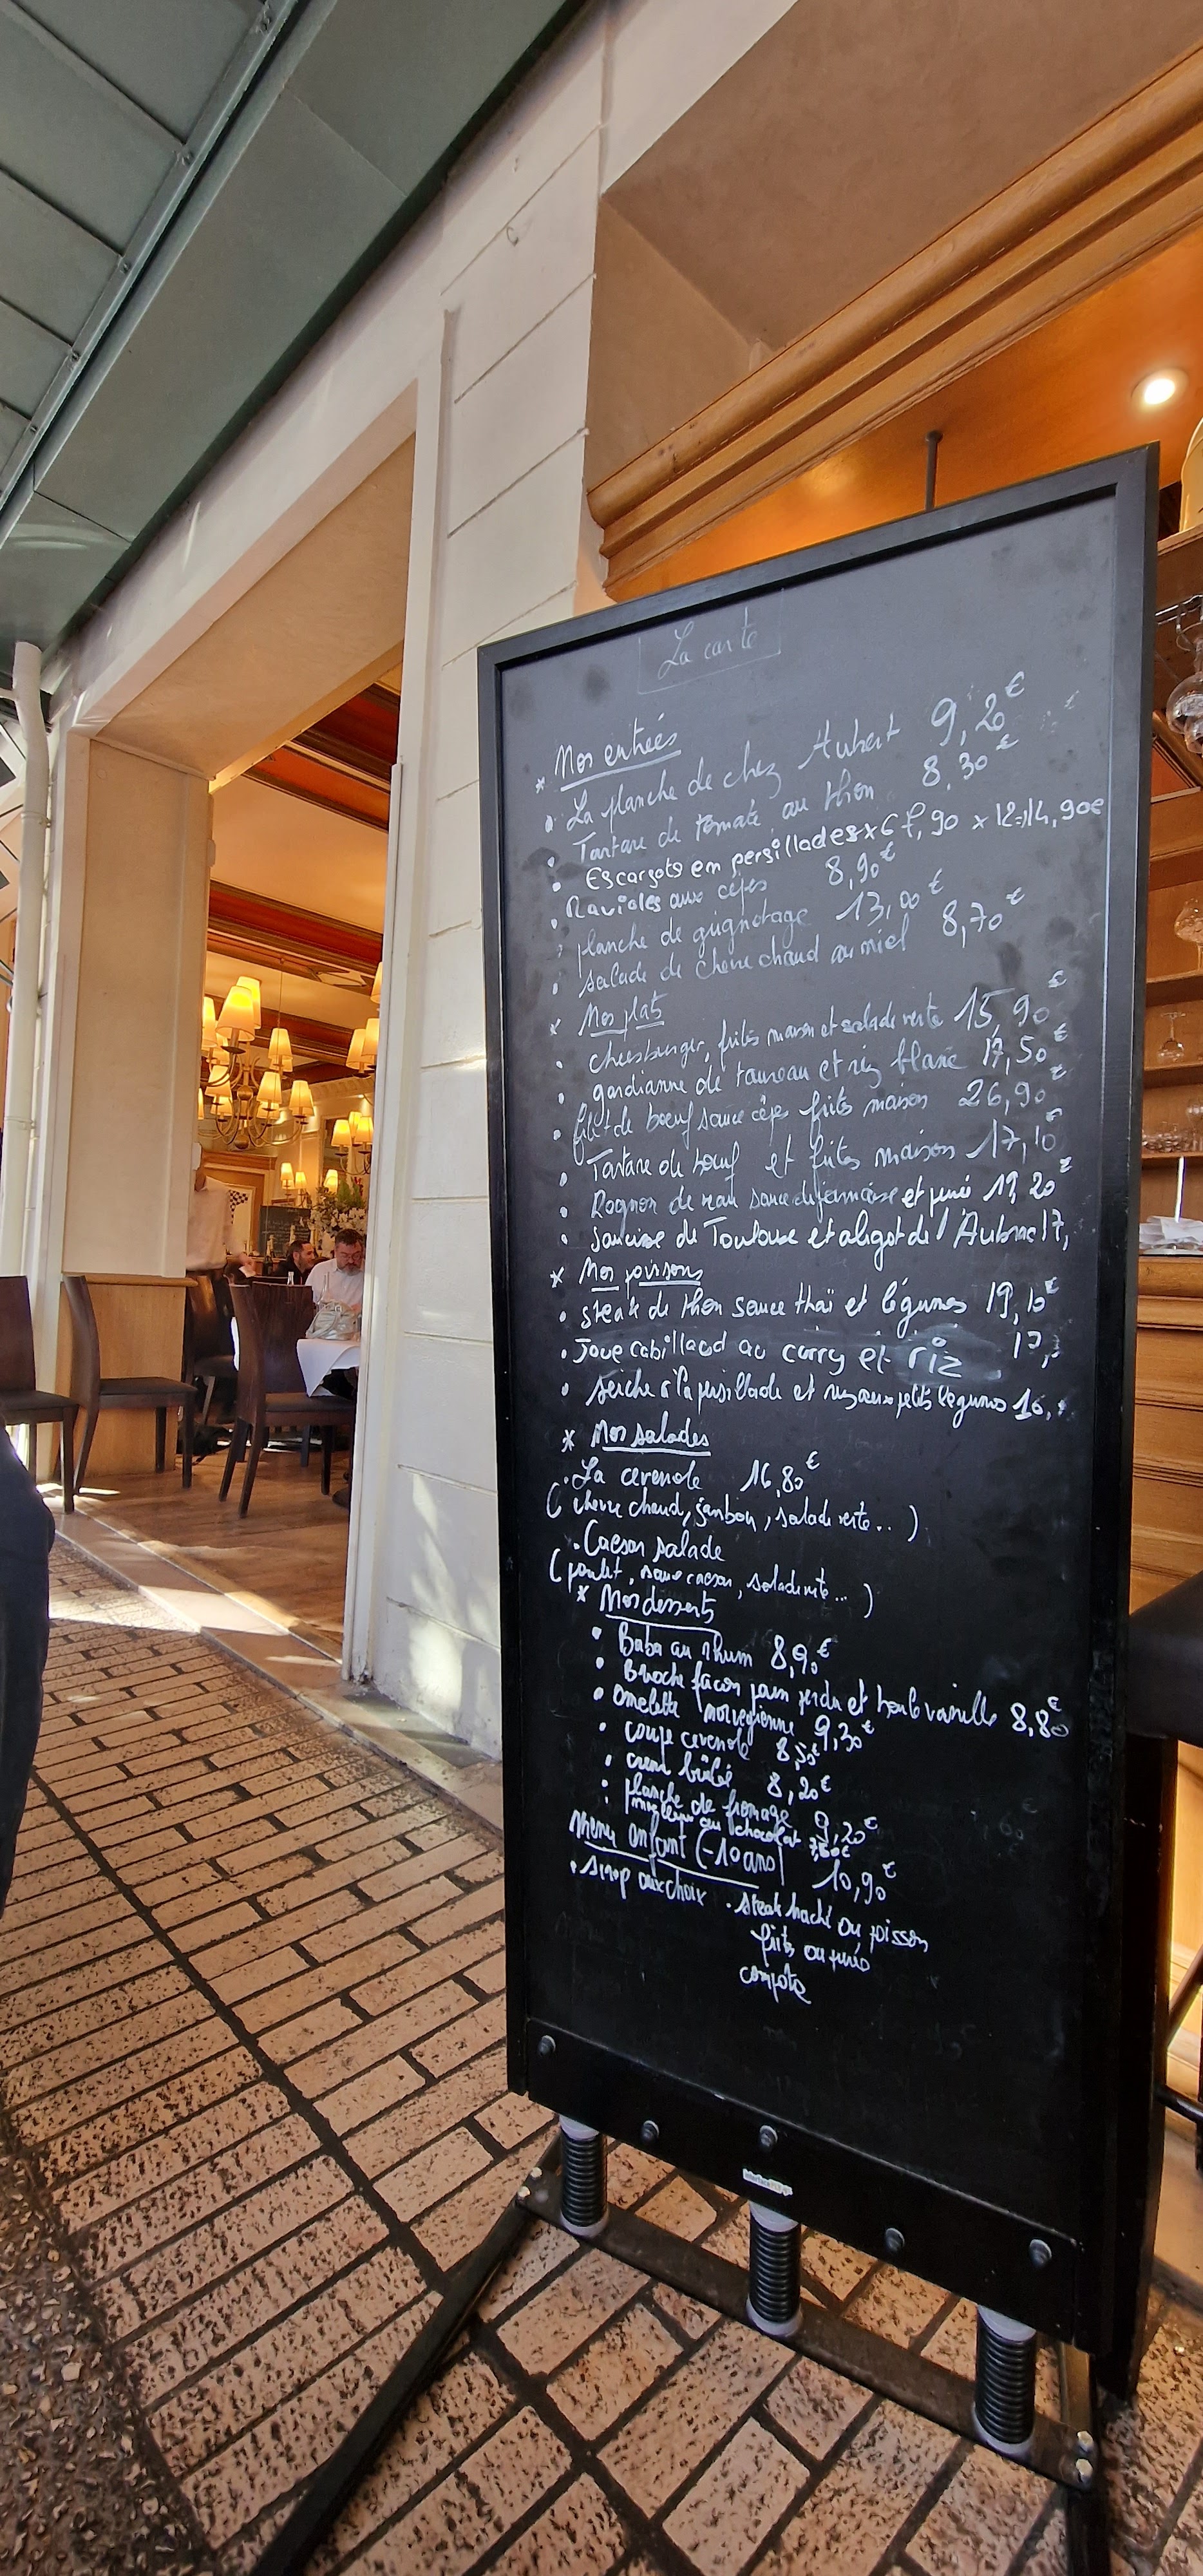 La carte
* Nos entrées
• La planche de chez Aubert 9,20€
• Tartare de tomate au thon 8,30€
• Escargots en persillades x6 7,90 x12=14,90€
• Ravioles aux cèpes 8,90€
• planche de grignotage 13,00€
• salade de chèvre chaud au miel 8,70€
* Nos plats
• cheesburger, frites maison et salade verte 15,90€
• gardianne de taureau et riz blanc 17,50€
• filet de boeuf sauce cèpes frites maison 26,90€
• Tartare de boeuf et frites maison 17,10€
• Rognon de veau sauce et purée 19,20€
• Saucisse de Toulouse et aligot de l'Aubrac 17,
* Nos poissons
• steak de thon sauce thaï et légumes 19,10€
• Joue cabillaud au curry et riz
• seiche à la persillade et riz aux petits légumes 16,
* Nos salades
• La cevenole 16,80€
( chèvre chaud, jambon, salade verte... )
• Caesar salade
( poulet, sauce caesar, salade verte... )
* Nos desserts
• Baba au rhum 8,90€
• Brioche façon pain perdu et boule vanille 8,80€
• Omelette norvegienne 9,30€
• coupe cevenole 8,50€
• crème brûlée 8,20€
• planche de fromage 9,20€
• moelleux au chocolat
Menu enfant (-10 ans) 10,90€
• sirop aux choix • steak haché ou poisson
frites ou purée
compote